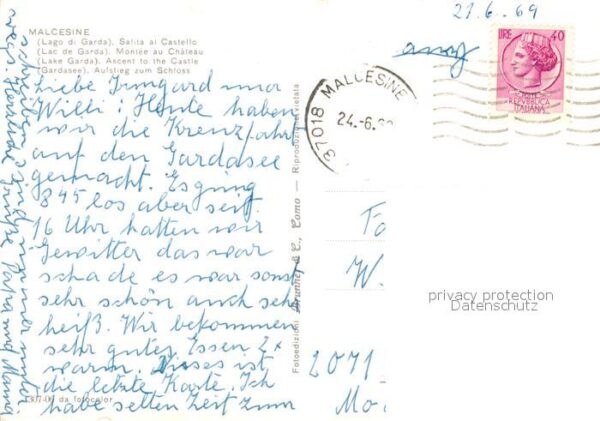 MALCESINE
(Lago di Garda). Salita al Castello
(Lac de Garda). Montée au Château
(Lake Garda). Ascent to the Castle
(Gardasee). Aufstieg zum Schloss
Liebe Irmgard und
Willi: Heute haben
wir die Kreuzfahrt
auf den Gardasee
gemacht. Es ging
845 los aber seit
16 Uhr hatten wir
Gewitter das war
schade es war sonst
sehr schön auch sehr
heiß. Wir bekommen
sehr gutes Essen 2x
warm. Dieses ist
die letzte Karte. Ich
habe selten Zeit zum
schreiben
Grüße Petra und Mama
da fotocolor
Fotoedizioni Brunner & C., Como — Riproduzione vietata
23.6.69
37018 MALCESINE
24.-6.
LIRE 40
REPVBBLICA
ITALIANA
W.
2071
privacy protection
Datenschutz